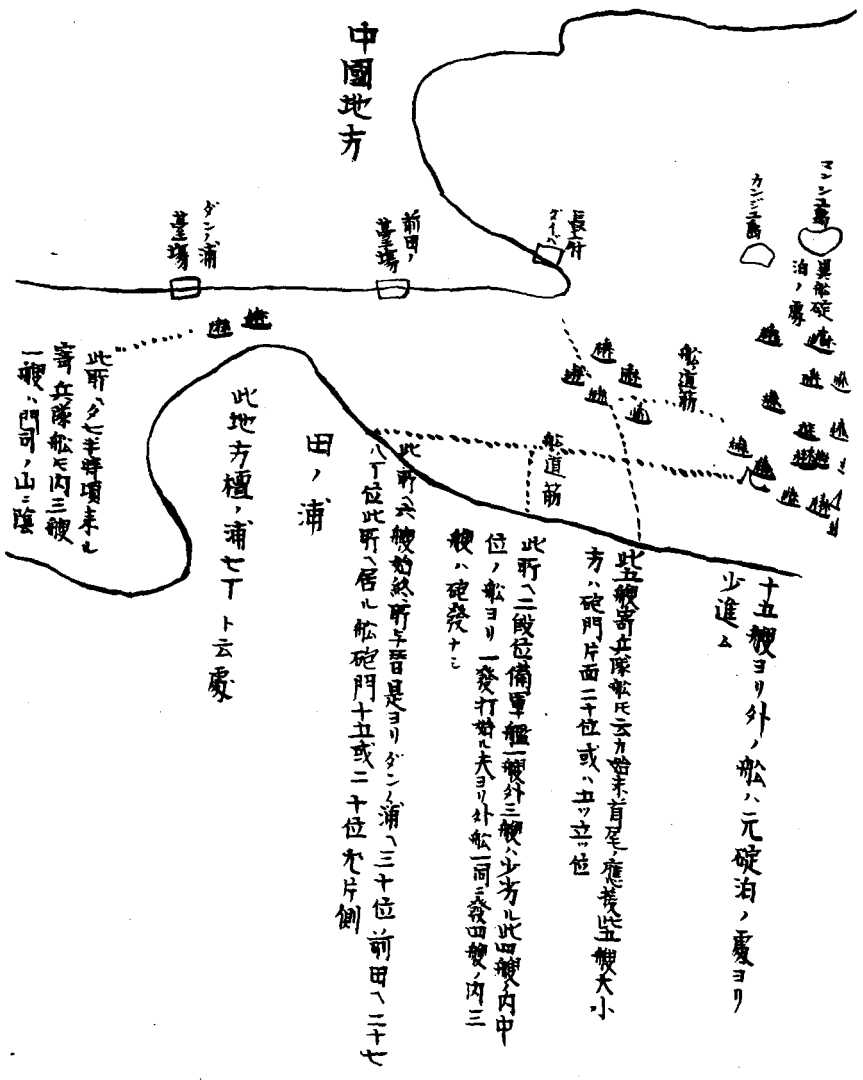 中國地方
マンジユ島
異船碇
泊ノ處
カンジユ島
長府
ダイバ
前田ノ
臺場
ダンノ浦
臺場
船道筋
船道筋
十五艘ヨリ外ノ船ハ元碇泊ノ處ヨリ
少進ム
此五艘寄兵隊船ト云方始末首尾ノ應接此五艘大小
方ハ砲門片面二十位或ハ五ツ立ツ位
此所ヘ二段位備軍艦一艘外三艘ハ少劣ル此四艘ノ内中
位ノ船ヨリ一發打始ル夫ヨリ外船一同ニ發四艘ノ内三
艘ハ砲發ナシ
此所ヘ六艘始終所ヲ替是ヨリダンノ浦ヘ三十位前田ヘ二十七
八丁位此所ヘ居ル船砲門十五或二十位尤片側
田ノ浦
此地方檀ノ浦七丁ト云處
此所ヘ夕七半時頃来ル
寄兵隊船ノ内三艘
一艘ハ門司ノ山ニ陰